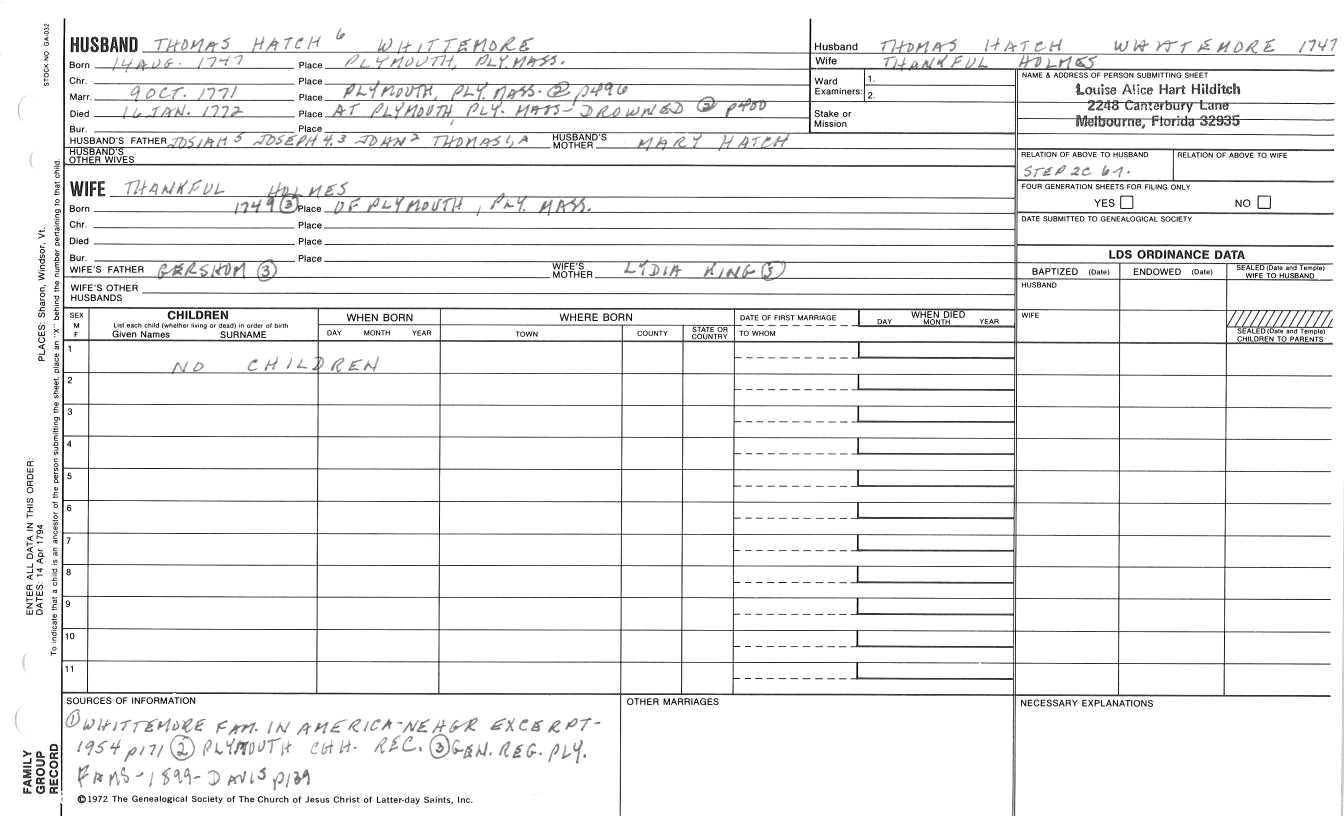 STOCK NO GA-032
HUSBAND THOMAS HATCH 6 WHITTEMORE
Born 14 AUG. 1747 Place PLYMOUTH, PLY. MASS.
Chr. Place
Marr. 9 OCT. 1771 Place PLYMOUTH, PLY. MASS. ② p496
Died 16 JAN. 1772 Place AT PLYMOUTH, PLY. MASS - DROWNED ② p400
Bur. Place
HUSBAND'S FATHER JOSIAH 5 JOSEPH 4,3 JOHN 2 THOMAS 1,A HUSBAND'S MOTHER MARY HATCH
HUSBAND'S OTHER WIVES
Husband THOMAS HATCH WHITTEMORE 1747
Wife THANKFUL HOLMES
Ward Examiners: 1.
2.
Stake or Mission
NAME & ADDRESS OF PERSON SUBMITTING SHEET
Louise Alice Hart Hilditch
2248 Canterbury Lane
Melbourne, Florida 32935
RELATION OF ABOVE TO HUSBAND RELATION OF ABOVE TO WIFE
STEP 2C 6 7.
FOUR GENERATION SHEETS FOR FILING ONLY
YES NO
DATE SUBMITTED TO GENEALOGICAL SOCIETY
WIFE THANKFUL HOLMES
Born 1749 ③ Place OF PLYMOUTH, PLY. MASS.
Chr. Place
Died Place
Bur. Place
WIFE'S FATHER GERSHOM ③ WIFE'S MOTHER LYDIA KING ③
WIFE'S OTHER HUSBANDS
LDS ORDINANCE DATA
BAPTIZED (Date) ENDOWED (Date) SEALED (Date and Temple) WIFE TO HUSBAND
HUSBAND
WIFE
SEALED (Date and Temple) CHILDREN TO PARENTS
SEX M F
CHILDREN
List each child (whether living or dead) in order of birth
Given Names SURNAME
WHEN BORN
DAY MONTH YEAR
WHERE BORN
TOWN COUNTY STATE OR COUNTRY
DATE OF FIRST MARRIAGE
TO WHOM
WHEN DIED
DAY MONTH YEAR
1 NO CHILDREN
2
3
4
5
6
7
8
9
10
11
SOURCES OF INFORMATION
① WHITTEMORE FAM. IN AMERICA - NEHGR EXCERPT -
1954 p171 ② PLYMOUTH CHH. REC. ③ GEN. REG. PLY.
FAMS - 1899 - DAVIS p139
OTHER MARRIAGES
NECESSARY EXPLANATIONS
©1972 The Genealogical Society of The Church of Jesus Christ of Latter-day Saints, Inc.
PLACES: Sharon, Windsor, Vt.
ENTER ALL DATA IN THIS ORDER:
DATES: 14 Apr 1794
To indicate that a child is an ancestor of the person submitting the sheet, place an "X" behind the number pertaining to that child.
FAMILY
GROUP
RECORD